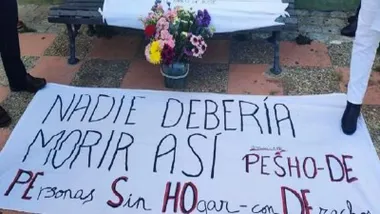 NADIE DEBERÍA
MORIR ASÍ
PESHO-DE
PErsonas Sin HOgar-con DErechos